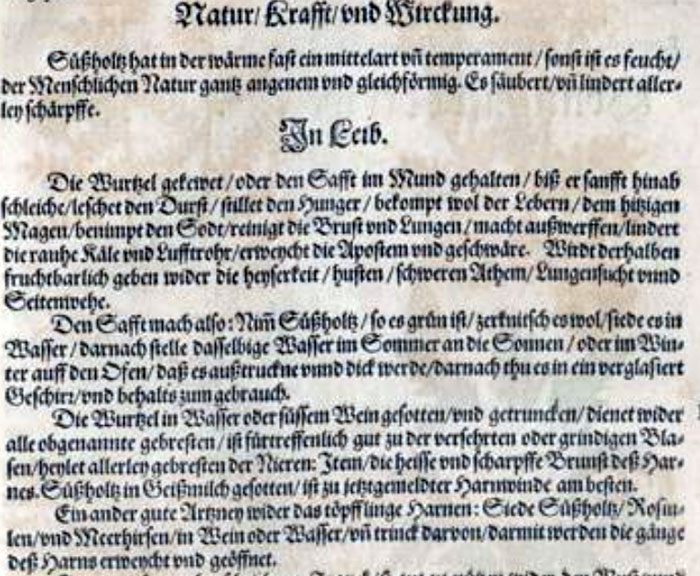 Natur/ Krafft/ vnd Wirckung.
Süßholtz hat in der wärme fast ein mittelart vñ temperament / sonst ist es feucht/
der Menschlichen Natur gantz angenem vnd gleichförmig. Es säubert/vñ lindert aller-
ley schärpffe.
In Leib.
Die Wurtzel gekewet / oder den Safft im Mund gehalten / biß er sanfft hinab
schleiche/leschet den Durst / stillet den Hunger / bekompt wol der Lebern / dem hitzigen
Magen/benimpt den Sodt/reinigt die Brust vnd Lungen / macht außwerffen/lindert
die rauhe Käle vnd Lufftrohr/erweycht die Apostem vnd geschwäre. Wirdt derhalben
fruchtbarlich geben wider die heyserkeit / husten / schweren Athem/ Lungensucht vnnd
Seitenwehe.
Den Safft mach also: Nim̃ Süßholtz / so es grün ist / zerknitsch es wol/siede es in
Wasser / darnach stelle dasselbige Wasser im Sommer an die Sonnen / oder im Win-
ter auff den Ofen/ daß es außtruckne vnnd dick werde/darnach thu es in ein verglasiert
Geschirr/vnd behalts zum gebrauch.
Die Wurtzel in Wasser oder süssem Wein gesotten/vnd getruncken/ dienet wider
alle obgenannte gebresten / ist fürtreffenlich gut zu der versehrten oder grindigen Bla-
sen/heylet allerley gebresten der Nieren: Item/die heisse vnd scharpffe Brunst deß Har-
nes. Süßholtz in Geißmilch gesotten/ ist zu jetztgemeldter Harnwinde am besten.
Ein ander gute Artzney wider das töpfflinge Harnen: Siede Süßholtz/ Rosin-
len/vnd Meerhirsen/in Wein oder Wasser/vñ trinck darvon/darmit werden die gänge
deß Harns erweycht vnd geöffnet.